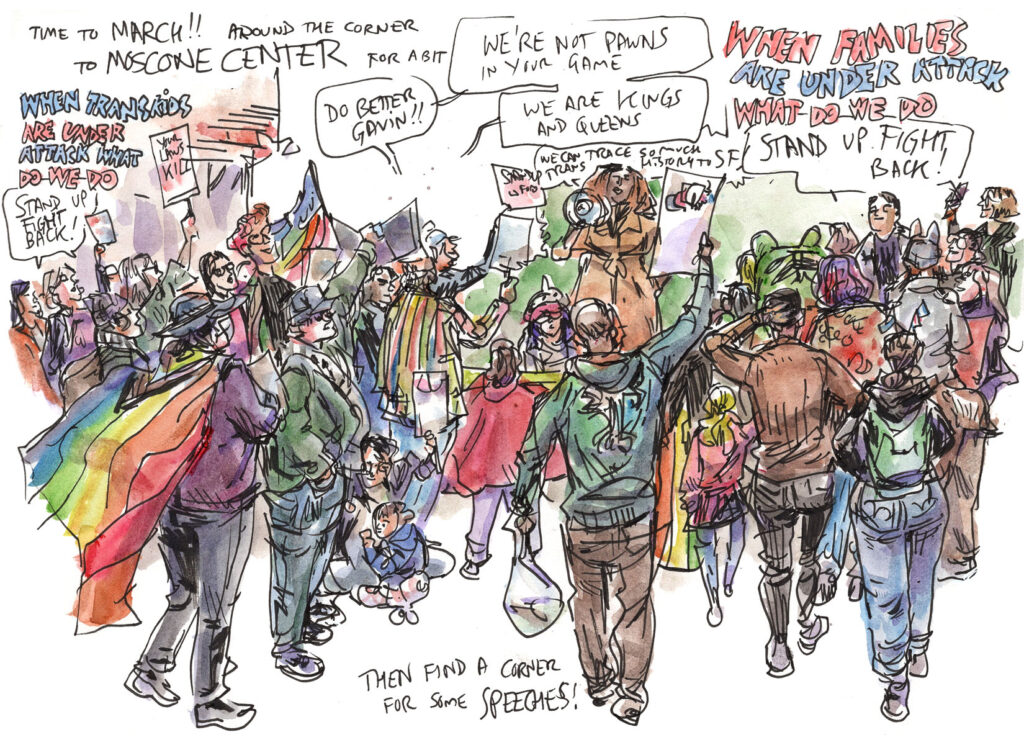 TIME TO MARCH!! AROUND THE CORNER
TO MOSCONE CENTER FOR A BIT
WE'RE NOT PAWNS
IN YOUR GAME
DO BETTER
GAVIN!!
WE ARE KINGS
AND QUEENS
WHEN FAMILIES
ARE UNDER ATTACK
WHAT DO WE DO
STAND UP FIGHT
BACK!
WHEN TRANS KIDS
ARE UNDER
ATTACK WHAT
DO WE DO
STAND UP
FIGHT
BACK!
YOUR
LAWS
KILL
WE CAN TRACE SO MUCH
TRANS HISTORY TO SF
THEN FIND A CORNER
FOR SOME SPEECHES!